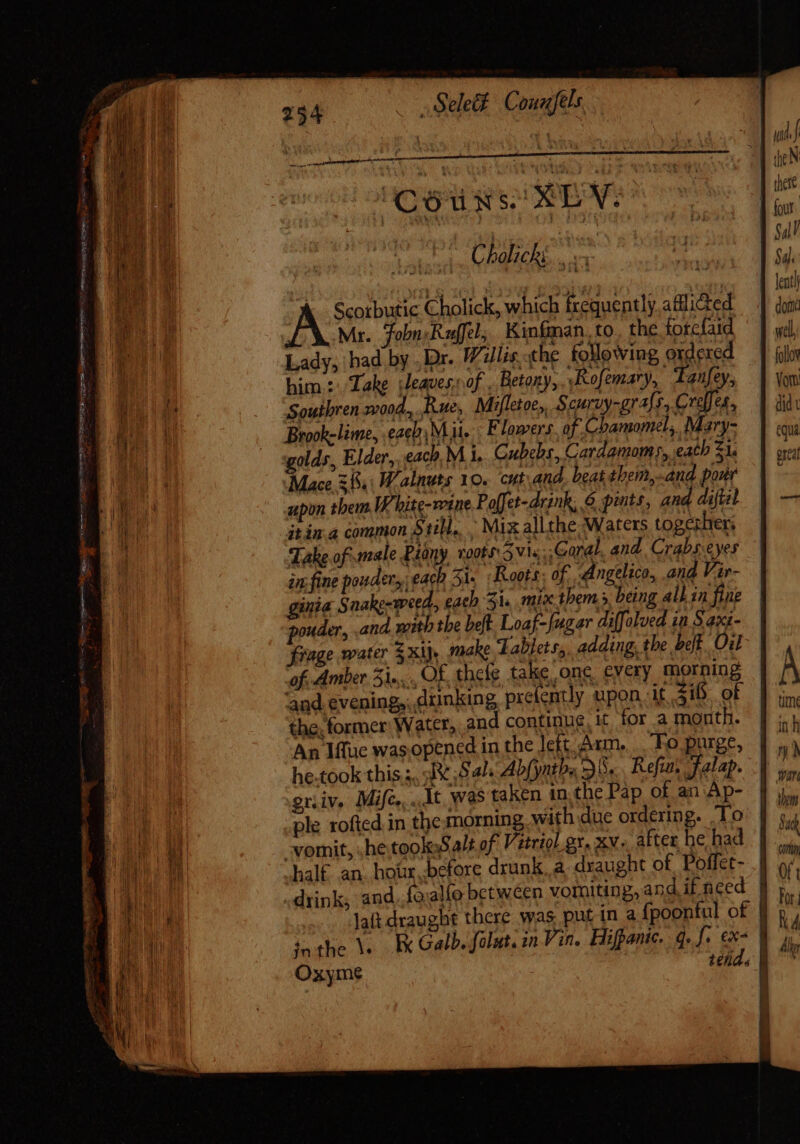 254 Select Counſels
Couns. XLV.
Cholicks
A Scorbutic Cholick, which frequently afflicted
Mr. John Ruſſel, Kinſman to the foreſaid
Lady, had by Dr. Willis the following ordered
him: Take leaves of Betony, Roſemary, Tanſey,
Southren wood, Rue, Miſletoe, Scurvy-graſs, Creſſes,
Brook-lime, each M ii. Flowers of Chamomel, Mary-
golds, Elder, each M i. Cubebs, Cardamoms, each ℥i.
Mace ℥ß. Walnuts 10. cut and beat them, and pour
upon them White-wine Poſſet-drink, 6 pints, and diſtil
it in a common Still. Mix all the Waters together.
Take of male Piony roots ʒvi. Coral, and Crabs eyes
in fine pouder, each ʒi. Roots of Angelico, and Vir-
ginia Snake-weed, each ʒi. mix them, being all in fine
pouder, and with the beſt Loaf-ſugar diſſolved in Saxi-
frage water ℥xij. make Tablets, adding the beſt Oil
of Amber ʒi. Of theſe take one every morning
and evening, drinking preſently upon it ℥iß of
the former Water, and continue it for a month.
An Iſſue was opened in the left Arm. To purge,
he took this; ℞ Sal. Abſynth. ℈ß. Reſin. Jalap.
gr. iv. Miſc. It was taken in the Pap of an Ap-
ple roſted in the morning with due ordering. To
vomit, he took Salt of Vitriol gr. xv. after he had
half an hour before drunk a draught of Poſſet-
drink, and ſo alſo between vomiting, and if need
laſt draught there was put in a ſpoonful of
in the \. ℞ Galb. ſolut. in Vin. Hiſpanic. q. ſ. ex-
Oxyme tend.